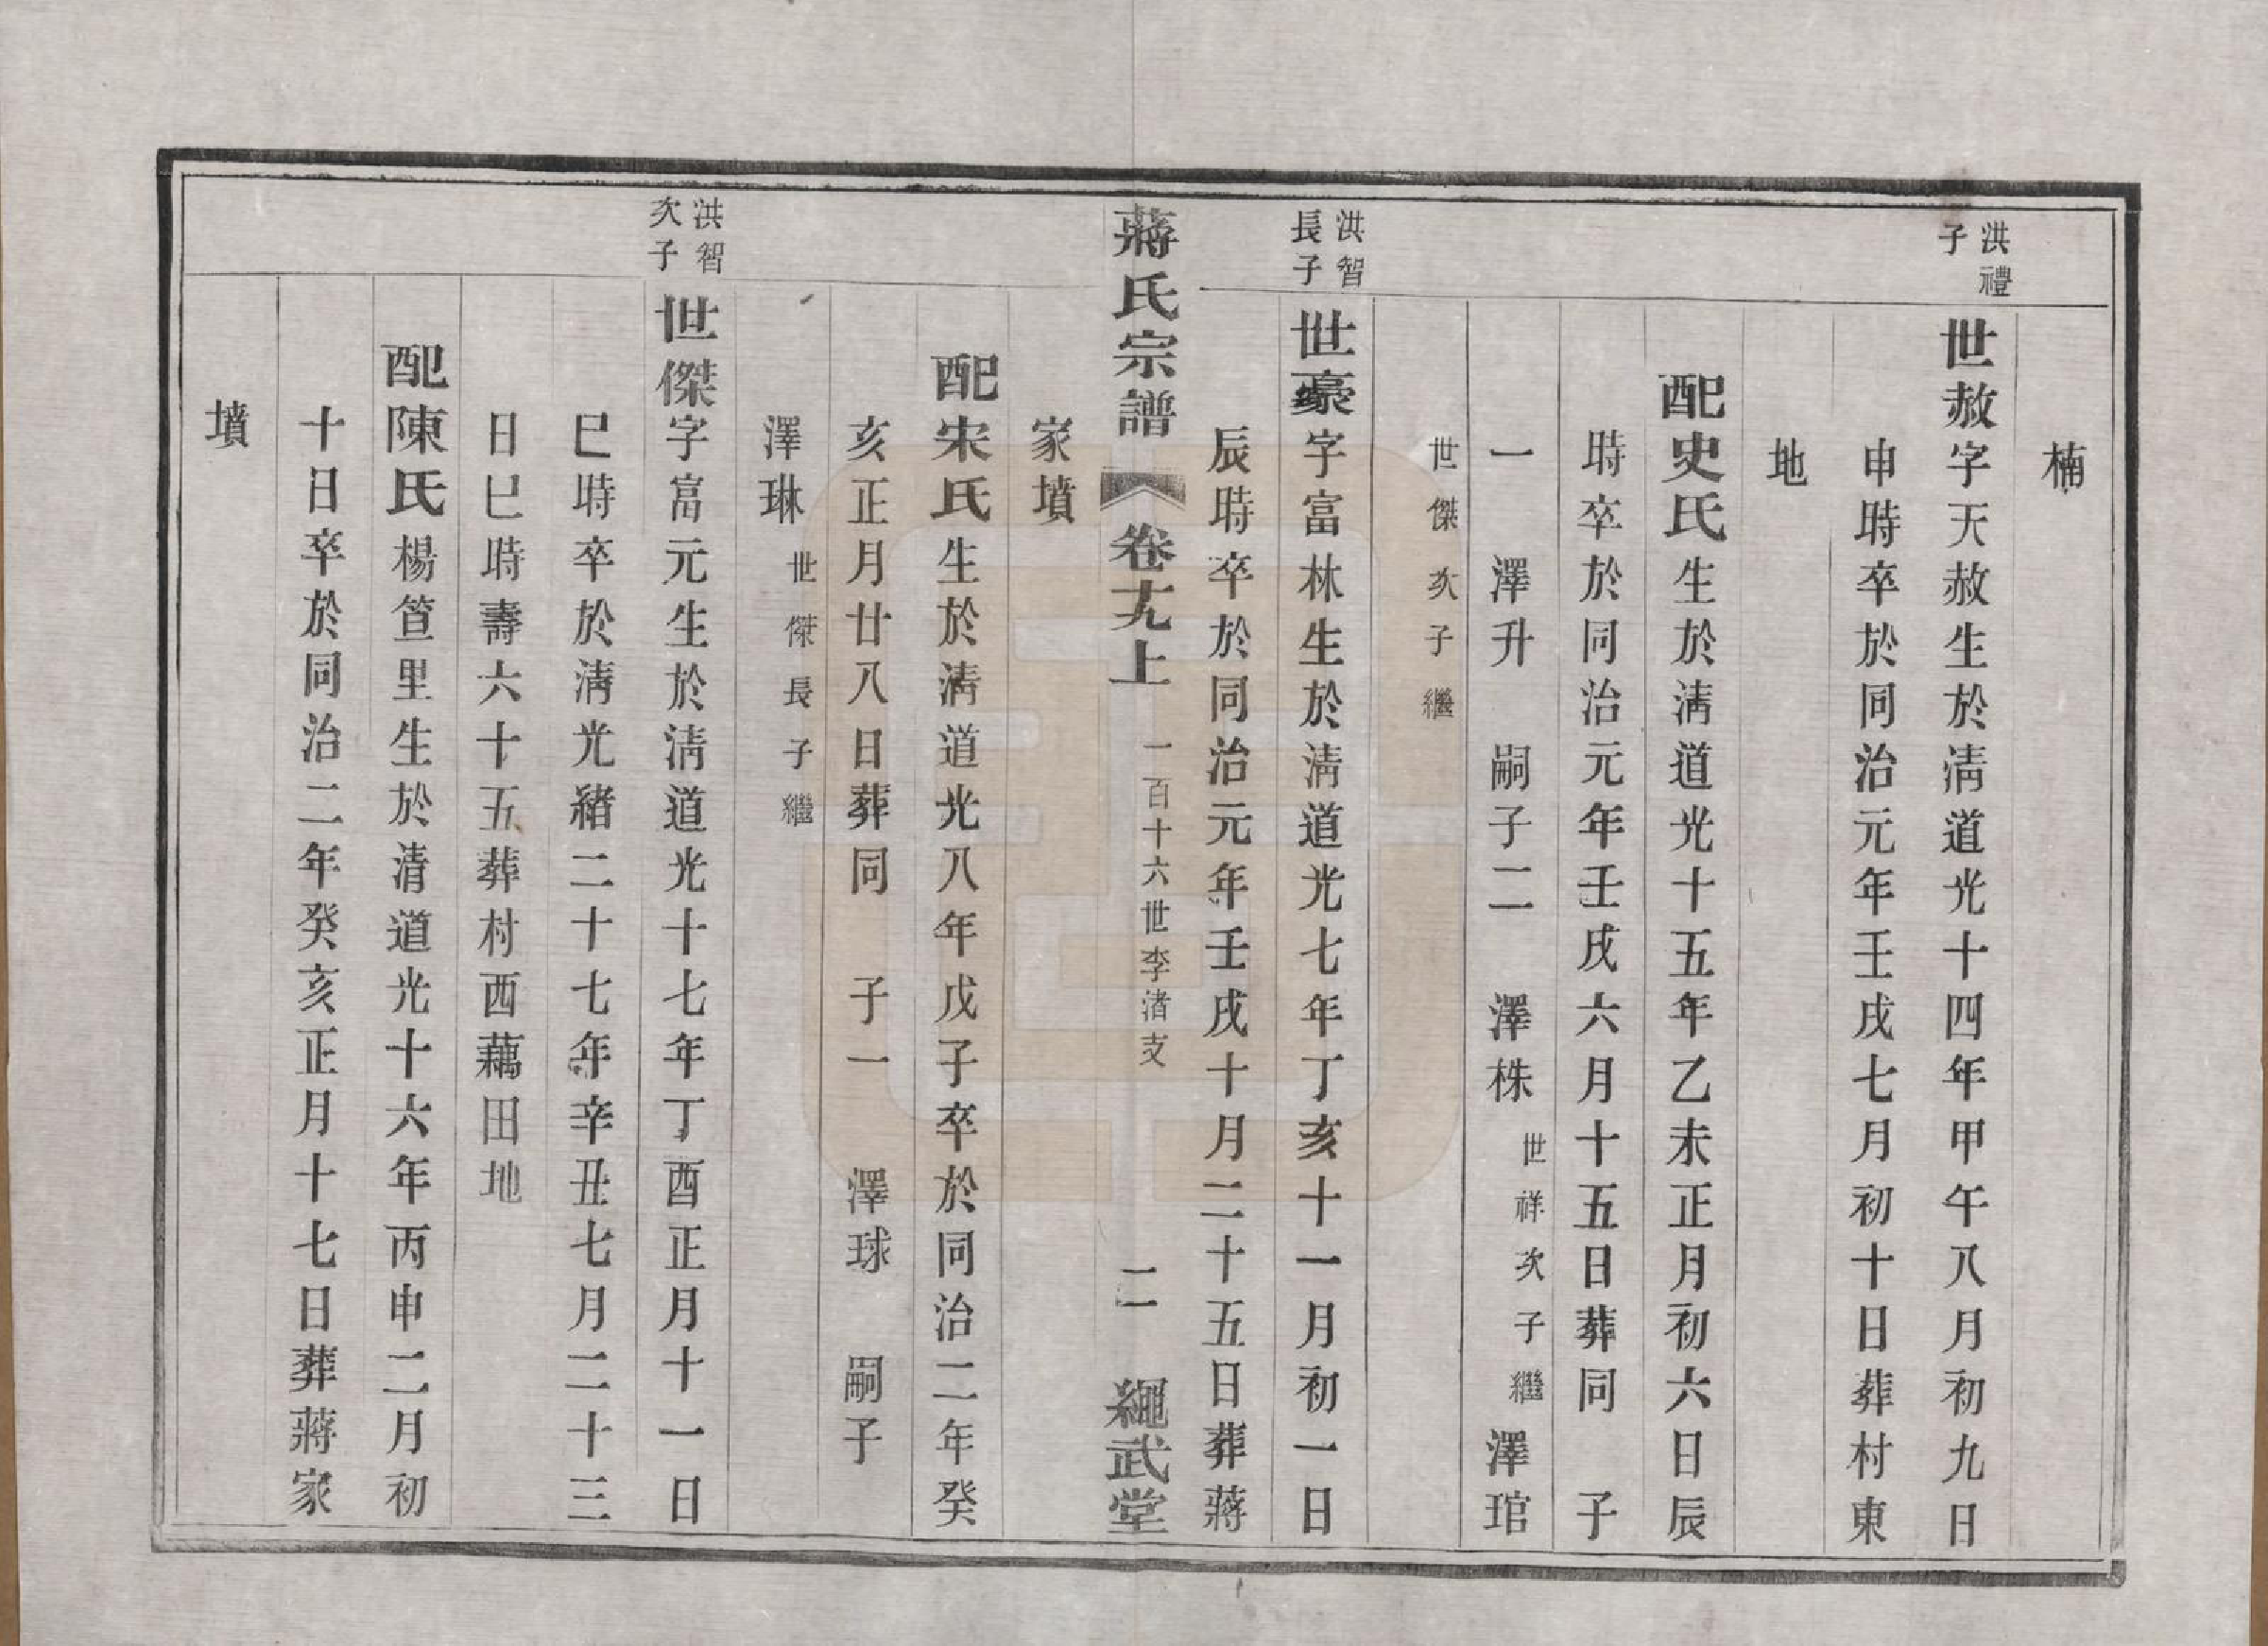 楠
洪禮
子
世赦字天赦生於淸道光十四年甲午八月初九日
申時卒於同治元年壬戌七月初十日葬村東
地
配史氏生於淸道光十五年乙未正月初六日辰
時卒於同治元年壬戌六月十五日葬同 子
一 澤升 嗣子二 澤株世祥次子繼澤琯
世傑次子繼
洪智
長子
世豪字富林生於淸道光七年丁亥十一月初一日
辰時卒於同治元年壬戌十月二十五日葬蔣
家墳
蔣氏宗譜 卷十九上 一百十六世李渚支 二 繩武堂
配宋氏生於淸道光八年戊子卒於同治二年癸
亥正月廿八日葬同 子一 澤球 嗣子
澤琳世傑長子繼
洪智
次子
世傑字富元生於淸道光十七年丁酉正月十一日
巳時卒於淸光緒二十七年辛丑七月二十三
日巳時壽六十五葬村西藕田地
配陳氏楊笪里生於清道光十六年丙申二月初
十日卒於同治二年癸亥正月十七日葬蔣家
墳